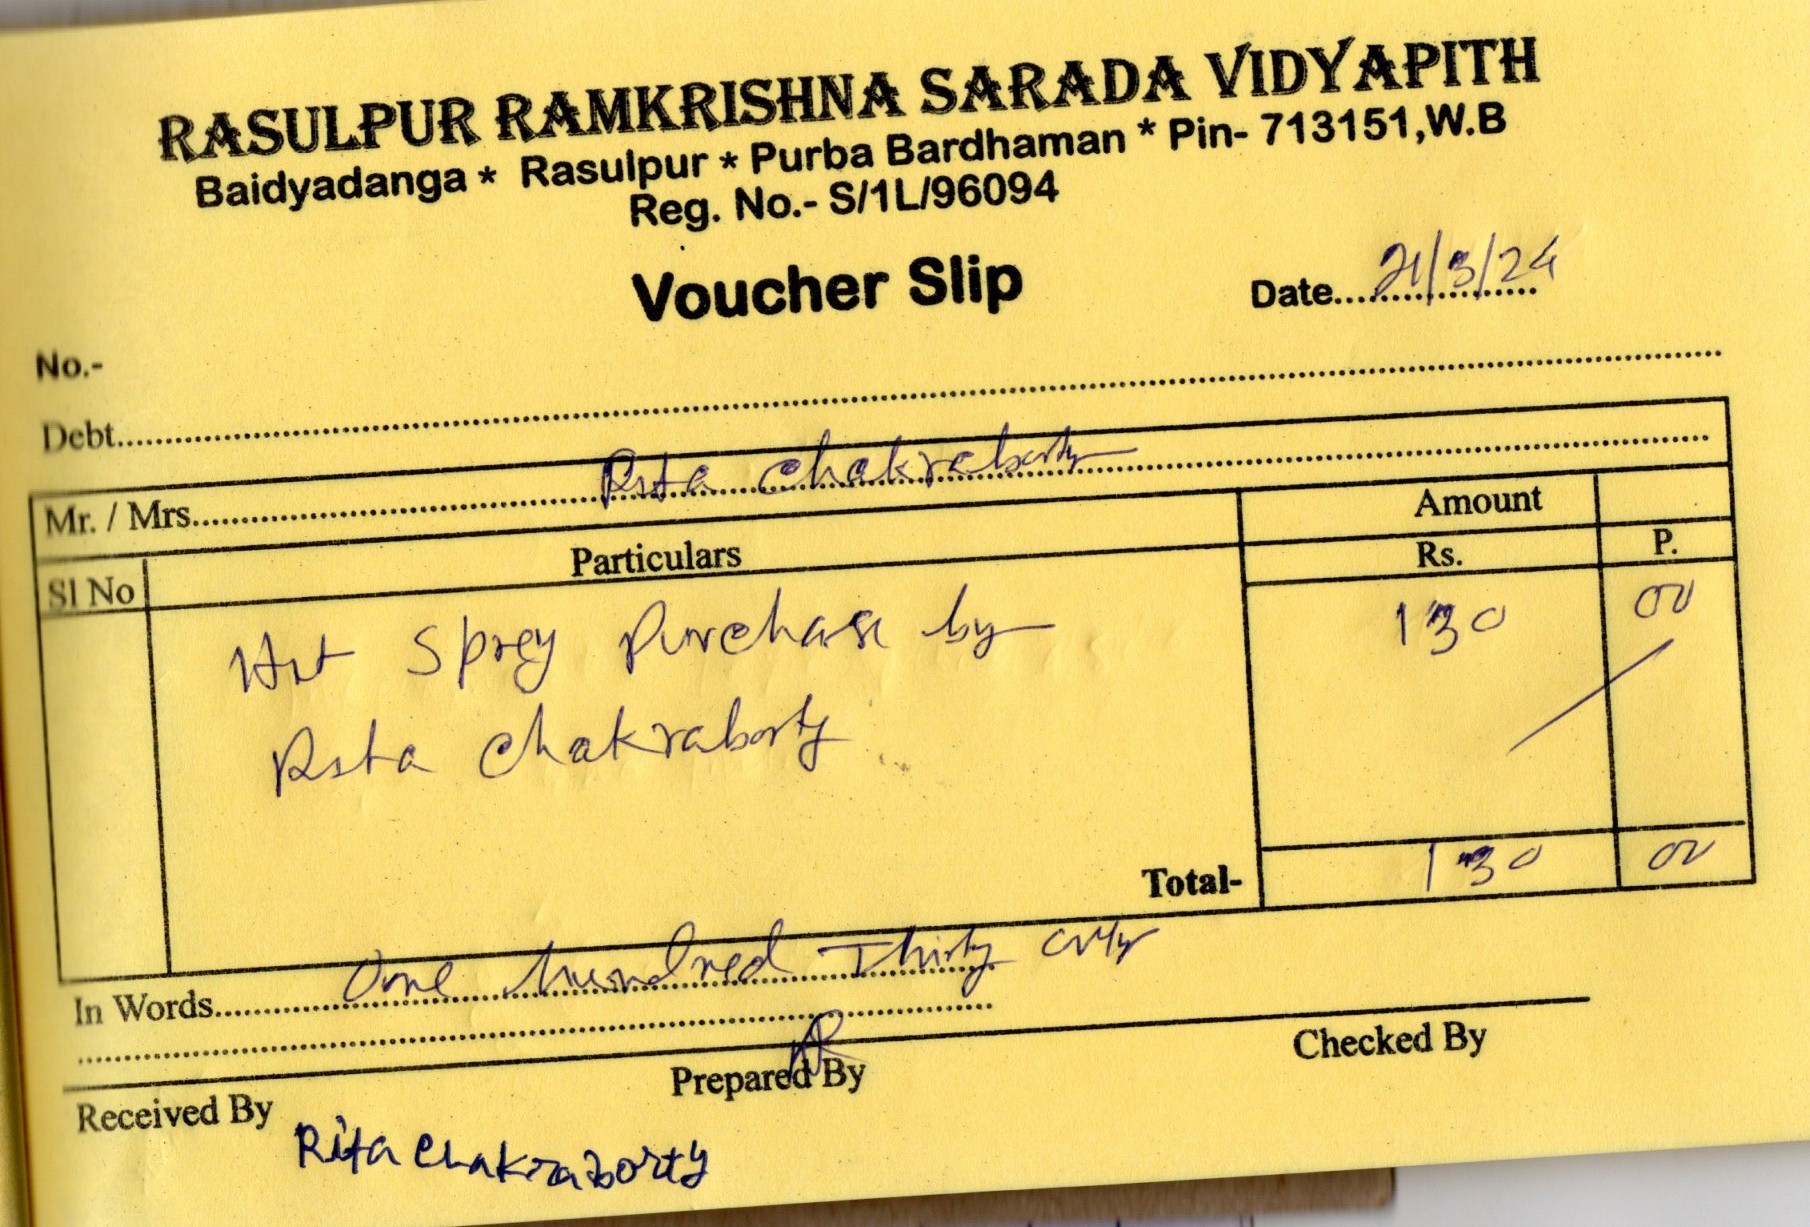 RASULPUR RAMKRISHNA SARADA VIDYAPITH
Baidyadanga * Rasulpur * Purba Bardhaman * Pin- 713151,W.B
Reg. No.- S/1L/96094
Voucher Slip
Date.... 21/3/24
No.-
Debt....
Mr. / Mrs.... Rita Chakraborty
Amount
Sl No Particulars Rs. P.
Hit Sprey Purchase by 130 00
Rita Chakraborty
Total- 130 00
In Words.... One hundred Thirty only
Received By Prepared By Checked By
Rita Chakraborty